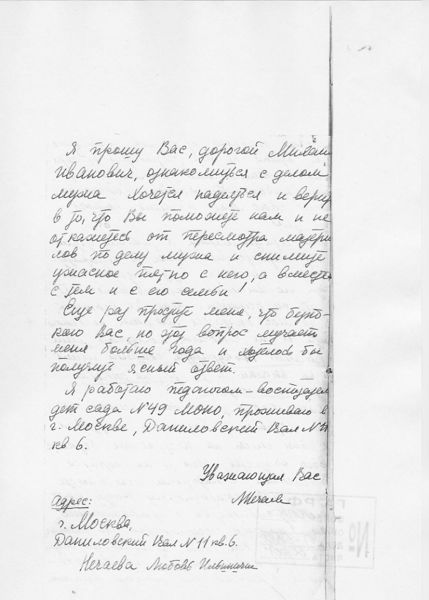 Я прошу Вас, дорогой Михаил
Иванович, ознакомиться с делом
мужа Хочется надеяться и верить
в то, что Вы поможете нам и не
откажетесь от пересмотра матери
лов по делу мужа и снимите
ужасное пятно с него, а вместе
с тем и с его семьи!
Еще раз простите меня, что беспо-
кою Вас, но этот вопрос мучает
меня больше года и хотелось бы
получить ясный ответ.
Я работаю педагогом-воспитателем
дет сада N 49 Моно, проживаю в
г. Москве, Даниловский Вал N 11
кв 6.
Уважающая Вас
Нечаева
адрес:
г. Москва,
Даниловский Вал N 11 кв. 6.
Нечаева Любовь Ильинична
№